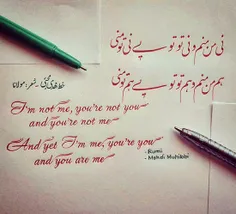 نی من منم و نی تو تویی نی تو منی
هم من منم و هم تو تویی هم تو منی
شعر: مولانا
I'm not me, you're not you
and you're not me
And yet I'm me, you're you
and you are me
- Rumi
- Mehdi Mohikibi